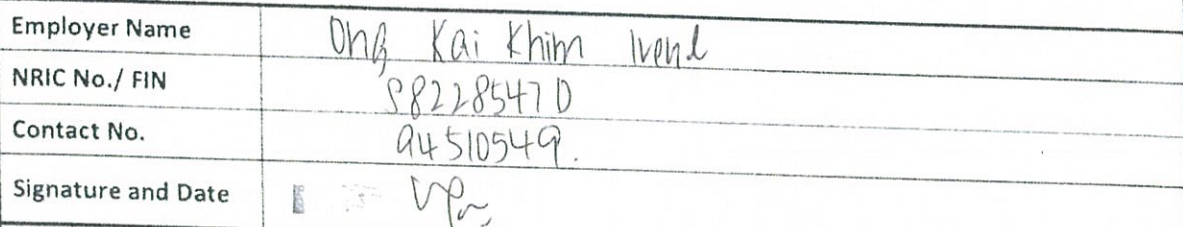 Employer Name Ong Kai Khim Irene
NRIC No./ FIN S8228547D
Contact No. 94510549.
Signature and Date